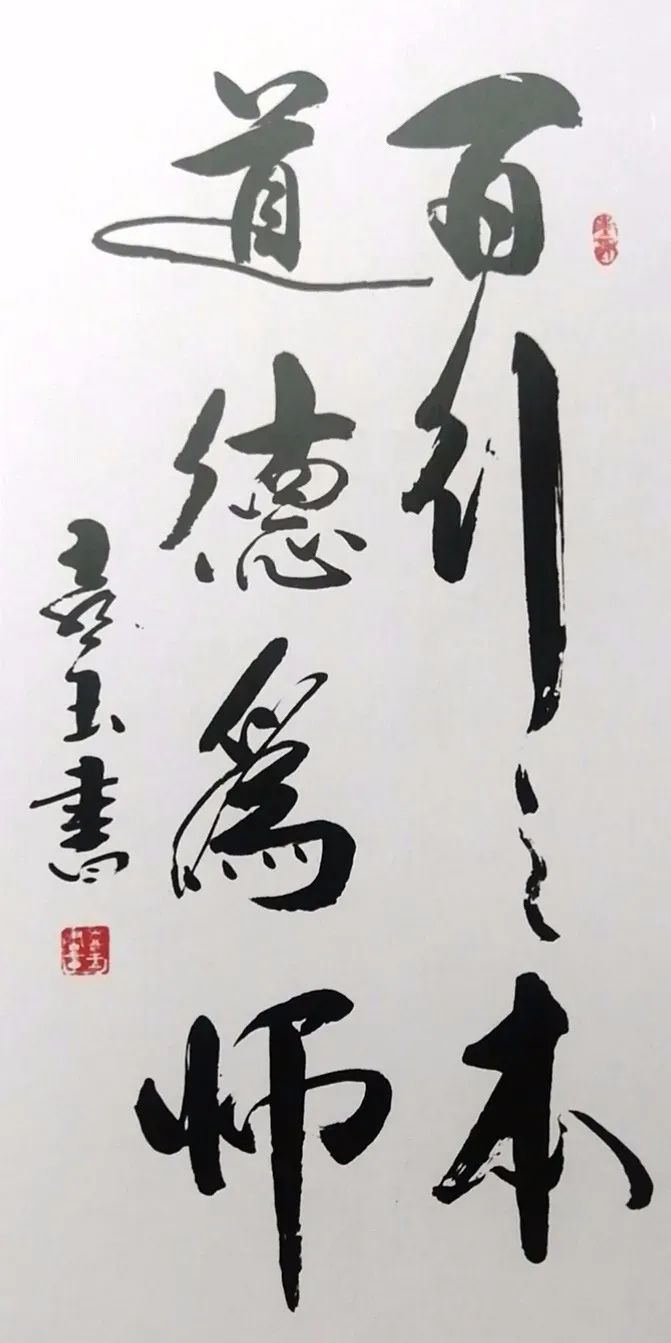 百行之本
道德爲师
喜玉書